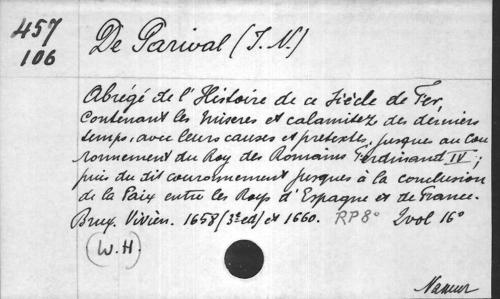 457
106
De Parival (J. N.)
Abrégé de l'Histoire de ce Siècle de Fer,
contenant les miseres et calamitez des derniers
temps, avec leurs causes et pretextes, jusques au Cou-
ronnement du Roy des Romains Ferdinand IV;
puis du dit couronnement jusques à la conclusion
de la Paix entre les Roys d'Espagne et de France.
Brux. Vivien. 1658 (3e ed) et 1660. RP8° 2vol 16°
(W.H)
Namur